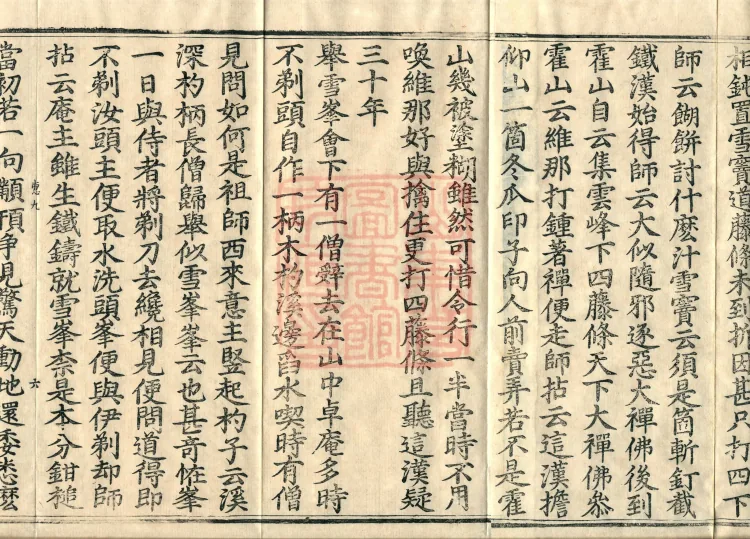 相鈍置雪竇道藤條未到折因甚只打四下
師云餬餅討什麽汁雪竇云須是箇斬釘截
鐵漢始得師云大似隨邪逐惡大禪佛後到
霍山自云集雲峰下四藤條天下大禪佛叅
霍山云維那打鍾著禪便走師拈云這漢擔
仰山一箇冬瓜印子向人前賣弄若不是霍
山幾被塗糊雖然可惜令行一半當時不用
喚維那好與擒住更打四藤條且聽這漢疑
三十年
舉雪峯會下有一僧辭去在山中卓庵多時
不剃頭自作一柄木杓溪邊舀水喫時有僧
見問如何是祖師西來意主竪起杓子云溪
深杓柄長僧歸舉似雪峯峯云也甚奇恠峯
一日與侍者將剃刀去纔相見便問道得即
不剃汝頭主便取水洗頭峯便與伊剃却師
拈云庵主雖生鐵鑄就雪峯柰是本分鉗槌
惠九
六
當初若一句顢頇争見驚天動地還委悉麽